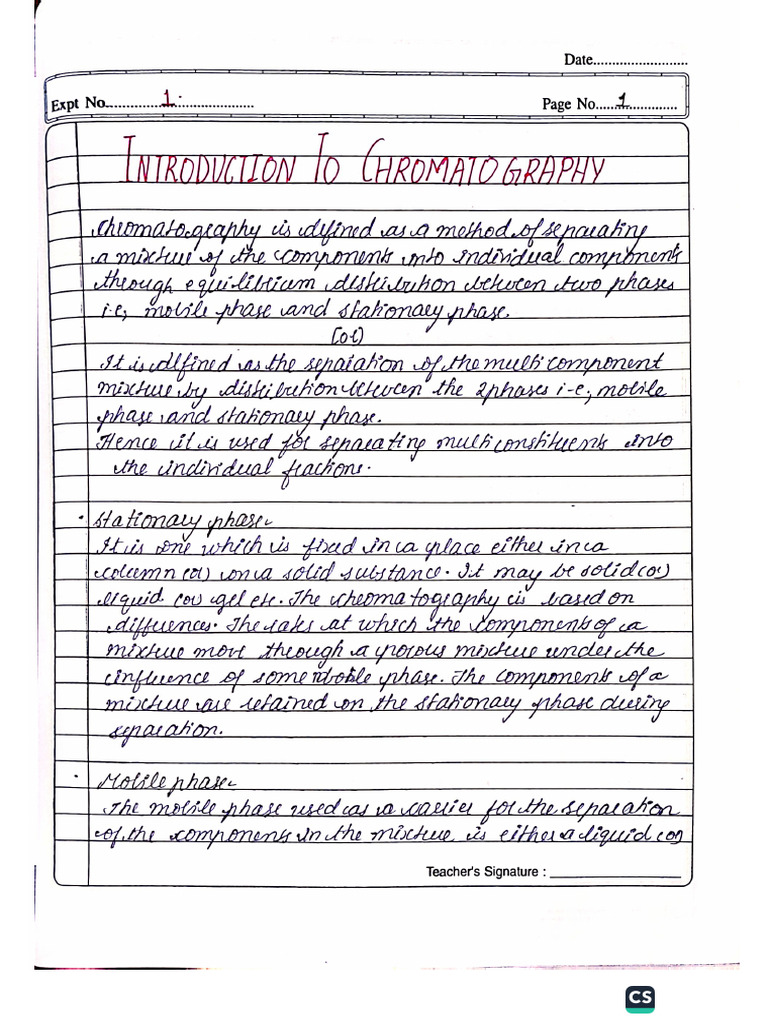 Date.........................
Expt No. 1.
Page No. 1
INTRODUCTION TO CHROMATOGRAPHY
Chromatography is defined as a method of separating
a mixture of the components into individual components
through equilibrium distribution between two phases
i.e; mobile phase and stationary phase.
(or)
It is defined as the separation of the multi component
mixture by distribution between the 2 phases i.e; mobile
phase and stationary phase.
Hence it is used for separating multi constituents into
the individual fractions.
• Stationary phase-
It is one which is fixed in a place either in a
column (or) on a solid substance. It may be solid (or)
liquid (or) gel etc. The chromatography is based on
differences. The rates at which the components of a
mixture move through a porous mixture under the
influence of some mobile phase. The components of a
mixture are retained on the stationary phase during
separation.
• Mobile phase-
The mobile phase used as a carrier for the separation
of the components in the mixture is either a liquid (or)
Teacher's Signature : 
CS